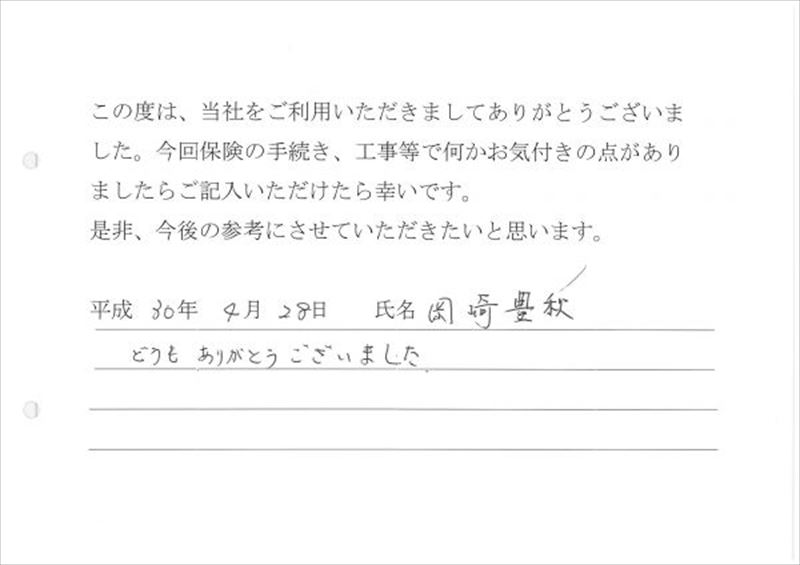 この度は、当社をご利用いただきましてありがとうございま
した。今回保険の手続き、工事等で何かお気付きの点があり
ましたらご記入いただけたら幸いです。
是非、今後の参考にさせていただきたいと思います。
平成 30年 4月 28日 氏名 岡崎豊秋
どうも ありがとう ございました.